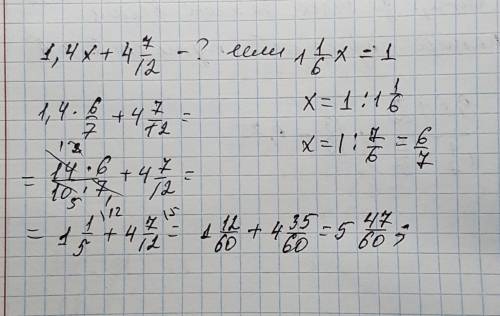 1,4x + 4 7/12 - ? если 1 1/6 x = 1
x = 1 : 1 1/6
1,4 · 6/7 + 4 7/12 =
x = 1 : 7/6 = 6/7
= 14 · 6 / 10 · 7 + 4 7/12 =
= 1 1/5 \12 + 4 7/12 \5 = 1 12/60 + 4 35/60 = 5 47/60 ;